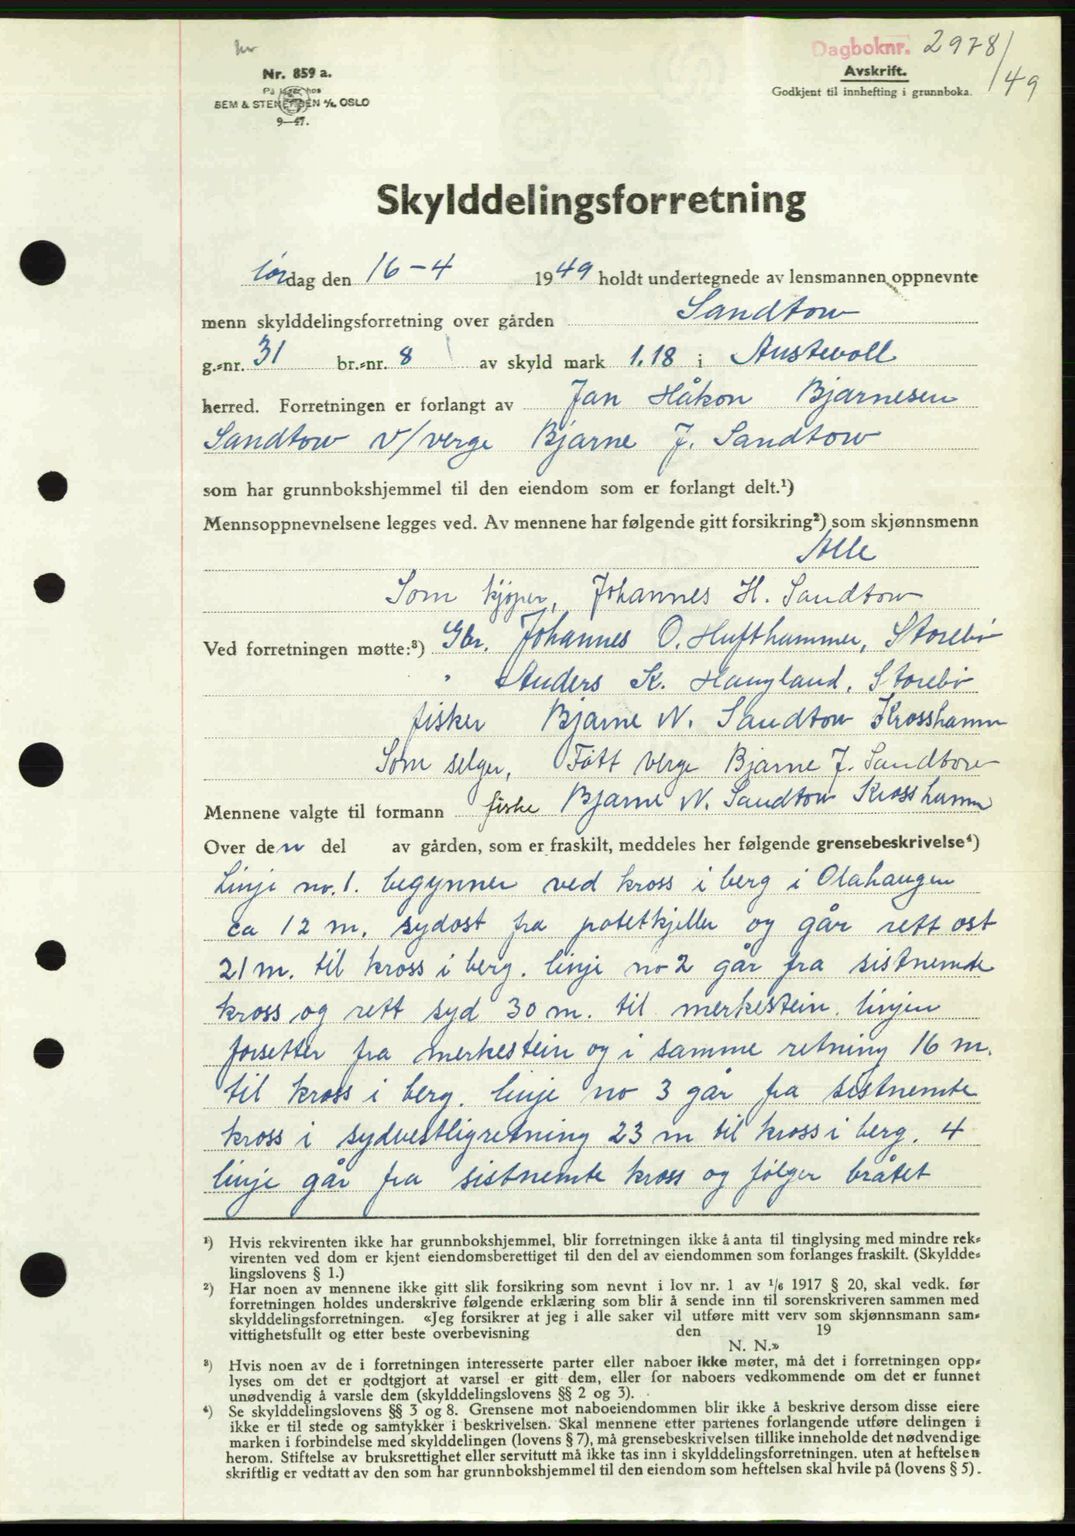 Dagboknr. 2978/49
Nr. 859 a.
På lager hos
BEM & STENERSEN A/S, OSLO
9—47.
Avskrift.
Godkjent til innhefting i grunnboka.
Skylddelingsforretning
Lørdag den 16-4 1949 holdt undertegnede av lensmannen oppnevnte
menn skylddelingsforretning over gården Sandtow
g.-nr. 31 br.-nr. 8 av skyld mark 1.18 i Austevoll
herred. Forretningen er forlangt av Jan Håkon Bjarnesen
Sandtow v/verge Bjarne J. Sandtow
som har grunnbokshjemmel til den eiendom som er forlangt delt.¹)
Mennsoppnevnelsene legges ved. Av mennene har følgende gitt forsikring²) som skjønnsmenn
Alle
Som kjøper, Johannes H. Sandtow
Ved forretningen møtte:³) Gbr. Johannes O. Hufthammer, Storebø
" Anders K. Haugland, Storebø
fisker Bjarne N. Sandtow Krosshamn
Som selger, Fått verge Bjarne J. Sandtow
Mennene valgte til formann fiske Bjarne N. Sandtow Krosshamn
Over den del av gården, som er fraskilt, meddeles her følgende grensebeskrivelse⁴)
Linje no. 1. begynner ved kross i berg i Olahaugen
ca 12 m. sydost fra potetkjeller og går rett ost
21 m. til kross i berg. linje no 2 går fra sistnemde
kross og rett syd 30 m. til merkestein. linjen
forsetter fra merkestein og i samme retning 16 m.
til kross i berg. linje no 3 går fra sistnemte
kross i sydvestligretning 23 m til kross i berg. 4
linje går fra sistnemte kross og følger bråtet
¹) Hvis rekvirenten ikke har grunnbokshjemmel, blir forretningen ikke å anta til tinglysing med mindre rek-
virenten ved dom er kjent eiendomsberettiget til den del av eiendommen som forlanges fraskilt. (Skyldde-
lingslovens § 1.)
²) Har noen av mennene ikke gitt slik forsikring som nevnt i lov nr. 1 av ¹/₆ 1917 § 20, skal vedk. før
forretningen holdes underskrive følgende erklæring som blir å sende inn til sorenskriveren sammen med
skylddelingsforretningen. «Jeg forsikrer at jeg i alle saker vil utføre mitt verv som skjønnsmann sam-
vittighetsfullt og etter beste overbevisning den 19
N. N.»
³) Hvis noen av de i forretningen interesserte parter eller naboer ikke møter, må det i forretningen opp-
lyses om det er godtgjort at varsel er gitt dem, eller for naboers vedkommende om det er funnet
unødvendig å varsle dem (skylddelingslovens §§ 2 og 3).
⁴) Se skylddelingslovens §§ 3 og 8. Grensene mot naboeiendommen blir ikke å beskrive dersom disse eiere
ikke er til stede og samtykker i beskrivelsen. Skal mennene etter partenes forlangende utføre delingen i
marken i forbindelse med skylddelingen (lovens § 7), må grensebeskrivelsen tillike inneholde det nødvendige
herom. Stiftelse av bruksrettighet eller servitutt må ikke tas inn i skylddelingsforretningen, uten at heftelsen
skriftlig er vedtatt av den som har grunnbokshjemmel til den eiendom som heftelsen skal hvile på (lovens § 5).